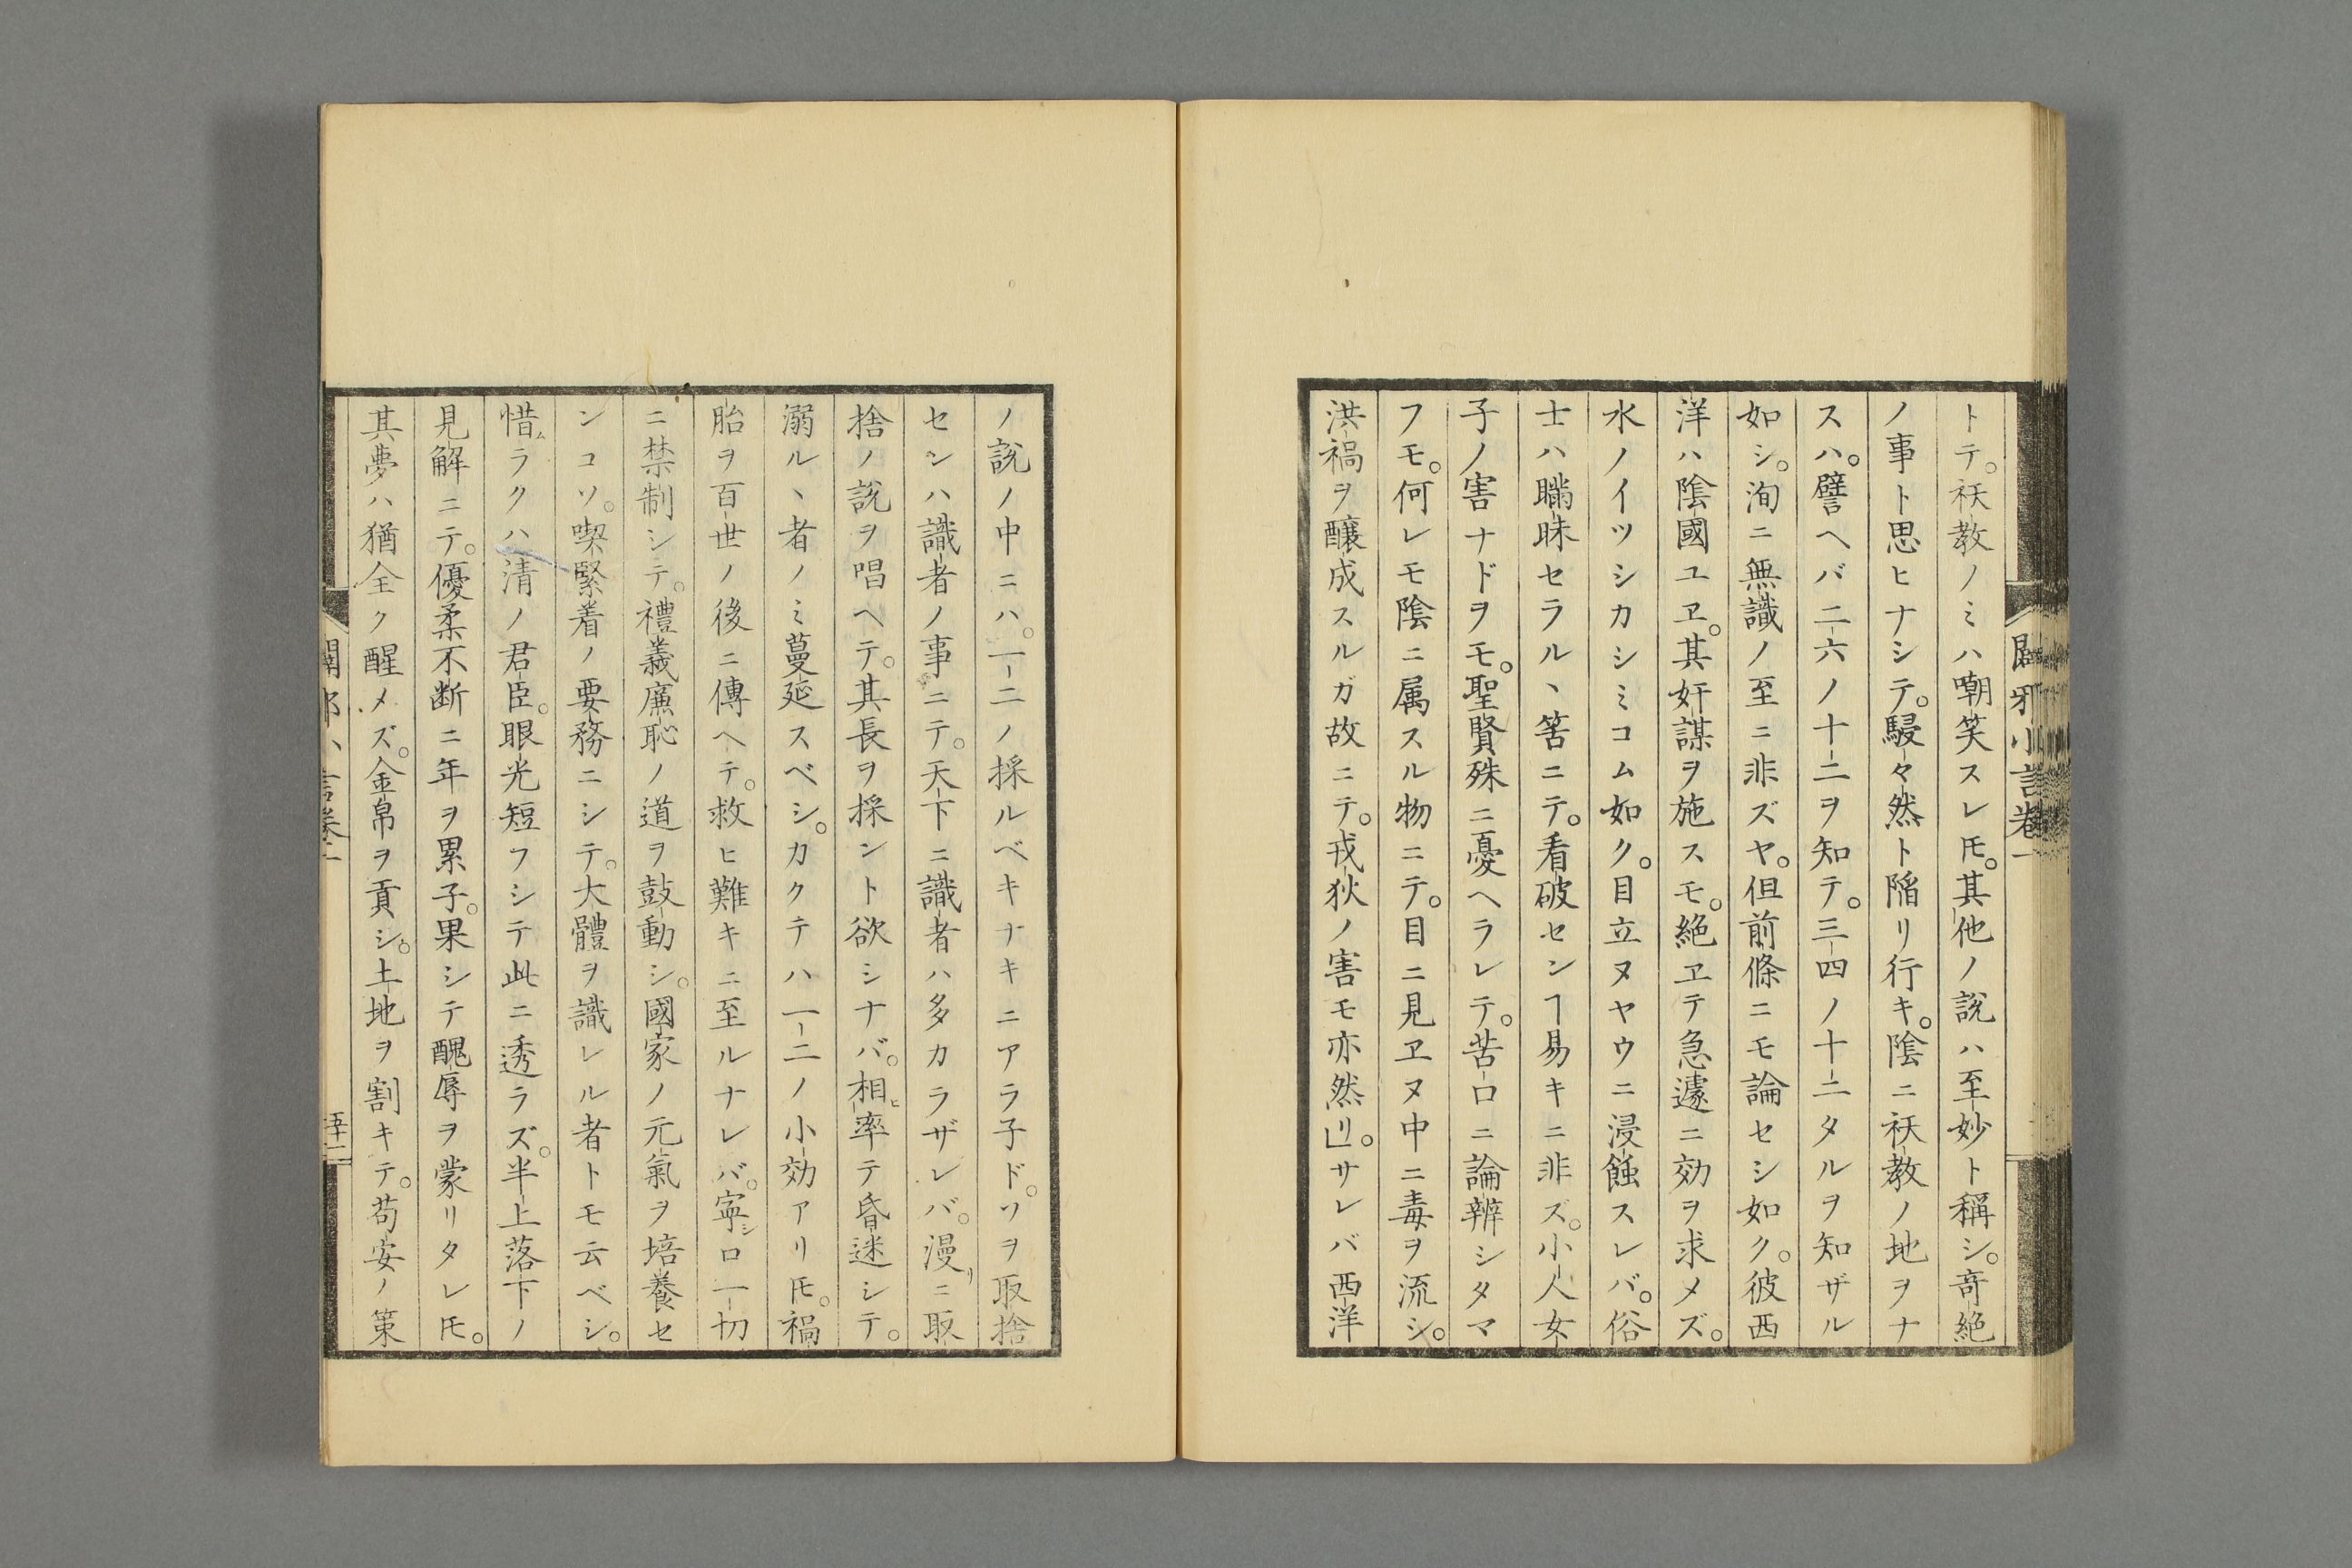 トテ。祆教ノミハ嘲笑スレ𪜈。其他ノ説ハ至妙ト稱シ。竒絶
ノ事ト思ヒナシテ。駸々然ト陥リ行キ。陰ニ祆教ノ地ヲナ
スハ。譬ヘバ二六ノ十二ヲ知テ。三四ノ十二タルヲ知ザル
如シ。洵ニ無識ノ至ニ非ズヤ。但前條ニモ論セシ如ク。彼西
洋ハ陰國ユヱ。其奸謀ヲ施スモ。絶ヱテ急遽ニ効ヲ求メズ。
水ノイツシカシミコム如ク。目立ヌヤウニ浸蝕スレバ。俗
士ハ瞞昧セラルヽ筈ニテ。看破センヿ易キニ非ズ。小人女
子ノ害ナドヲモ。聖賢殊ニ憂ヘラレテ。苦口ニ論辨シタマ
フモ。何レモ陰ニ属スル物ニテ。目ニ見ヱヌ中ニ毒ヲ流シ。
洪禍ヲ醸成スルガ故ニテ。戎狄ノ害モ亦然リ」。サレバ西洋
闢邪小言巻一
ノ説ノ中ニハ。一二ノ採ルベキナキニアラ子ド。ソヲ取捨
センハ識者ノ事ニテ。天下ニ識者ハ多カラザレバ。漫リニ取
捨ノ説ヲ唱ヘテ。其長ヲ採ント欲シナバ。相ヒ率テ昏迷シテ。
溺ルヽ者ノミ蔓延スベシ。カクテハ一二ノ小効アリ𪜈。禍
胎ヲ百世ノ後ニ傳ヘテ。救ヒ難キニ至ルナレバ。寧シロ一切
ニ禁制シテ。禮義廉恥ノ道ヲ鼓動シ。國家ノ元氣ヲ培養セ
ンコソ。喫緊着ノ要務ニシテ。大體ヲ識レル者トモ云ベシ。
惜ムラクハ清ノ君臣。眼光短フシテ此ニ透ラズ。半上落下ノ
見解ニテ。優柔不断ニ年ヲ累子。果シテ醜辱ヲ蒙リタレ𪜈。
其夢ハ猶全ク醒メズ。金帛ヲ貢シ。土地ヲ割キテ。苟安ノ策